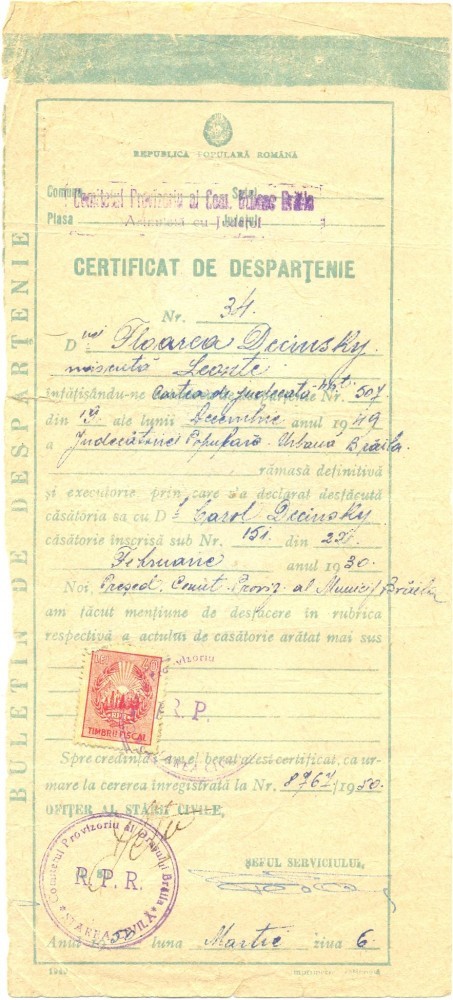 REPUBLICA POPULARĂ ROMÂNĂ
Comuna Satul
Comitetul Provizoriu al Com. Urbane Brăila
Plasa Județul
Asimilată cu Județ
CERTIFICAT DE DESPĂRȚENIE
Nr. 34.
D nei Floarea Decinsky
născută Leonte
înfățișându-ne Cartea de judecată Nr. 507
din 19 ale lunii Decembrie anul 1949
a Judecătoriei Populare Urbană Brăila.
rămasă definitivă
și executorie prin care s'a declarat desfăcută
căsătoria sa cu D l Carol Decinsky
căsătorie înscrisă sub Nr. 151. din 27.
Februarie anul 1930.
Noi, Președ. Comit. Proviz. al Municip. Brăila
am făcut mențiune de desfacere în rubrica
respectivă a actului de căsătorie arătat mai sus
Provizoriu
R.P.
TIMBRU FISCAL
Spre credință am eliberat acest certificat, ca ur-
mare la cererea înregistrată la Nr. 8767/1950.
OFIȚER AL STĂRII CIVILE,
Comitetul Provizoriu al Orașului Brăila
R.P.R.
STAREA CIVILĂ
ȘEFUL SERVICIULUI,
Anul 1950 luna Martie ziua 6
BULETIN DE DESPĂRȚENIE